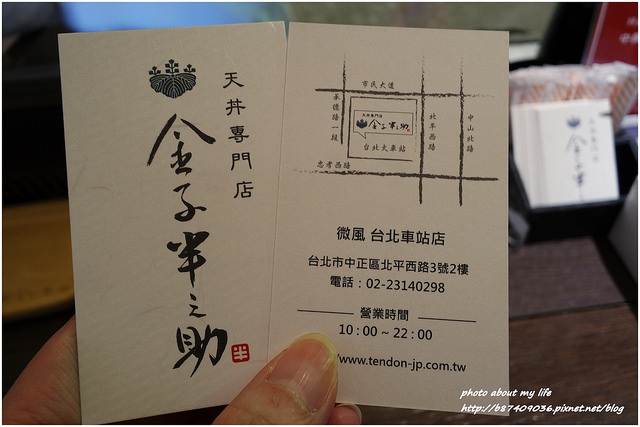 天丼專門店
金子半之助
半
市民大道
承德路一段
天丼專門店
金子半之助
台北火車站
北平西路
中山北路
忠孝西路
微風 台北車站店
台北市中正區北平西路3號2樓
電話：02-23140298
營業時間
10：00 ~ 22：00
/www.tendon-jp.com.tw
金子半之助
photo about my life
http://b87409036.pixnet.net/blog